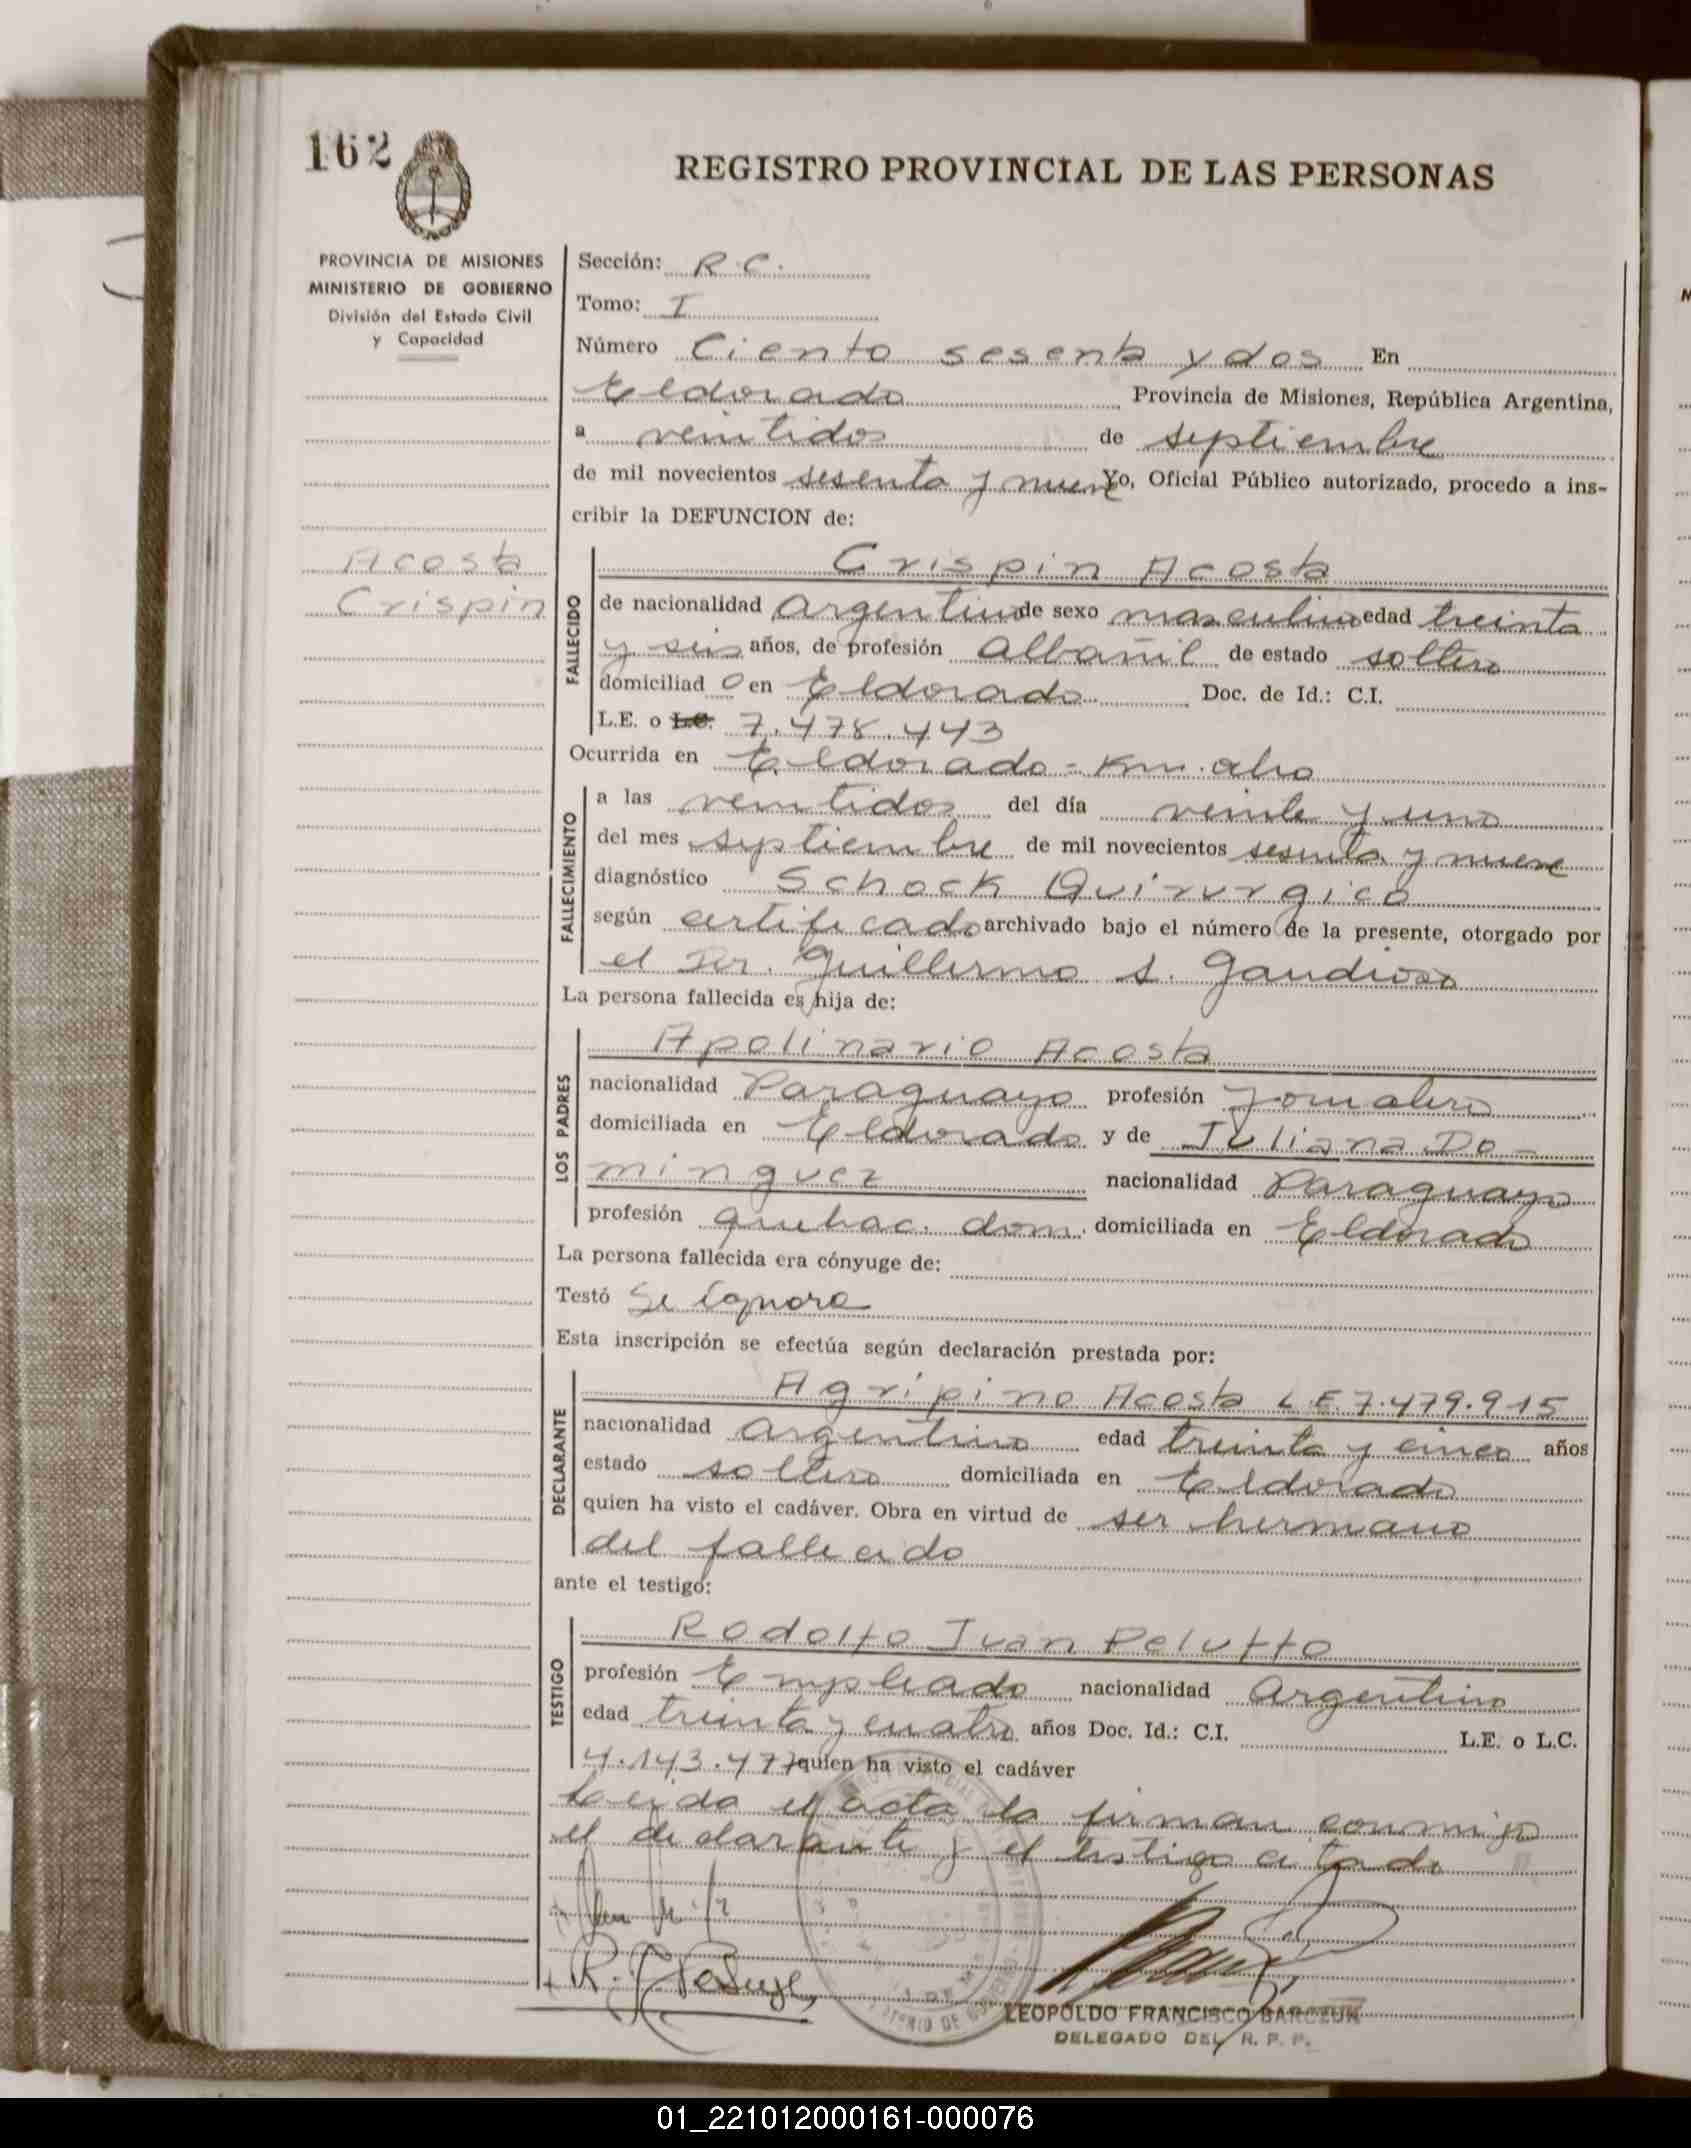 162
REGISTRO PROVINCIAL DE LAS PERSONAS
PROVINCIA DE MISIONES
MINISTERIO DE GOBIERNO
División del Estado Civil
y Capacidad
Acosta
Crispin
Sección: R.C.
Tomo: I
Número Ciento sesenta y dos En
Eldorado Provincia de Misiones, República Argentina,
a veintidos de septiembre
de mil novecientos sesenta y nueve Yo, Oficial Público autorizado, procedo a ins-
cribir la DEFUNCION de:
FALLECIDO
Crispin Acosta
de nacionalidad argentino de sexo masculino edad treinta
y seis años, de profesión albañil de estado soltero
domiciliad o en Eldorado Doc. de Id.: C.I.
L.E. o L.C. 7.478.443
Ocurrida en Eldorado = Km.
FALLECIMIENTO
a las veintidos del día veinte y uno
del mes septiembre de mil novecientos sesenta y nueve
diagnóstico Schock Quirurgico
según certificado archivado bajo el número de la presente, otorgado por
el Dr. Guillermo S. Gaudioso
La persona fallecida es hija de:
LOS PADRES
Apolinario Acosta
nacionalidad Paraguayo profesión Jornalero
domiciliada en Eldorado y de Juliana Do-
minguez nacionalidad Paraguaya
profesión quehac. dom. domiciliada en Eldorado
La persona fallecida era cónyuge de:
Testó Se ignora
Esta inscripción se efectúa según declaración prestada por:
DECLARANTE
Agripino Acosta L.E.7.479.915
nacionalidad argentino edad treinta y cinco años
estado soltero domiciliada en Eldorado
quien ha visto el cadáver. Obra en virtud de ser hermano
del fallecido
ante el testigo:
TESTIGO
Rodolfo Juan Peluffo
profesión Empleado nacionalidad Argentino
edad treinta y cuatro años Doc. Id.: C.I. L.E. o L.C.
4.143.477 quien ha visto el cadáver
Leida el acta la firman conmigo
el declarante y el testigo citado
LEOPOLDO FRANCISCO BARCZUK
DELEGADO DEL R. P. P.
01_221012000161-000076